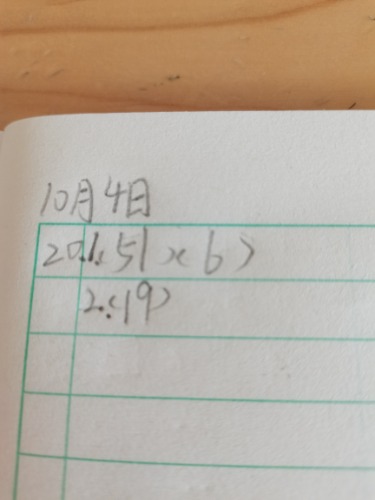 10月4日
20.1.51 × 6)
2.(19)